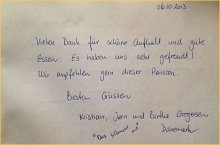 06.10.2013
Vielen Dank für schöne Aufhalt und gute
Essen. Es haben uns sehr gefreudt!
Wir empfehlen gern dieser Pansion.
Besten Grüssen
Kristian, Joan und Birthe Gregersen
Dänemark